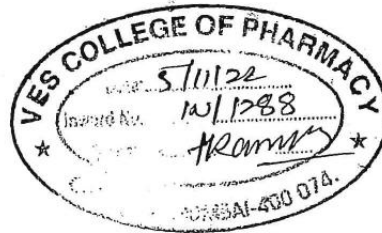 VES COLLEGE OF PHARMACY
Date: 5/11/22
Inward No. IN/1288
MUMBAI-400 074.